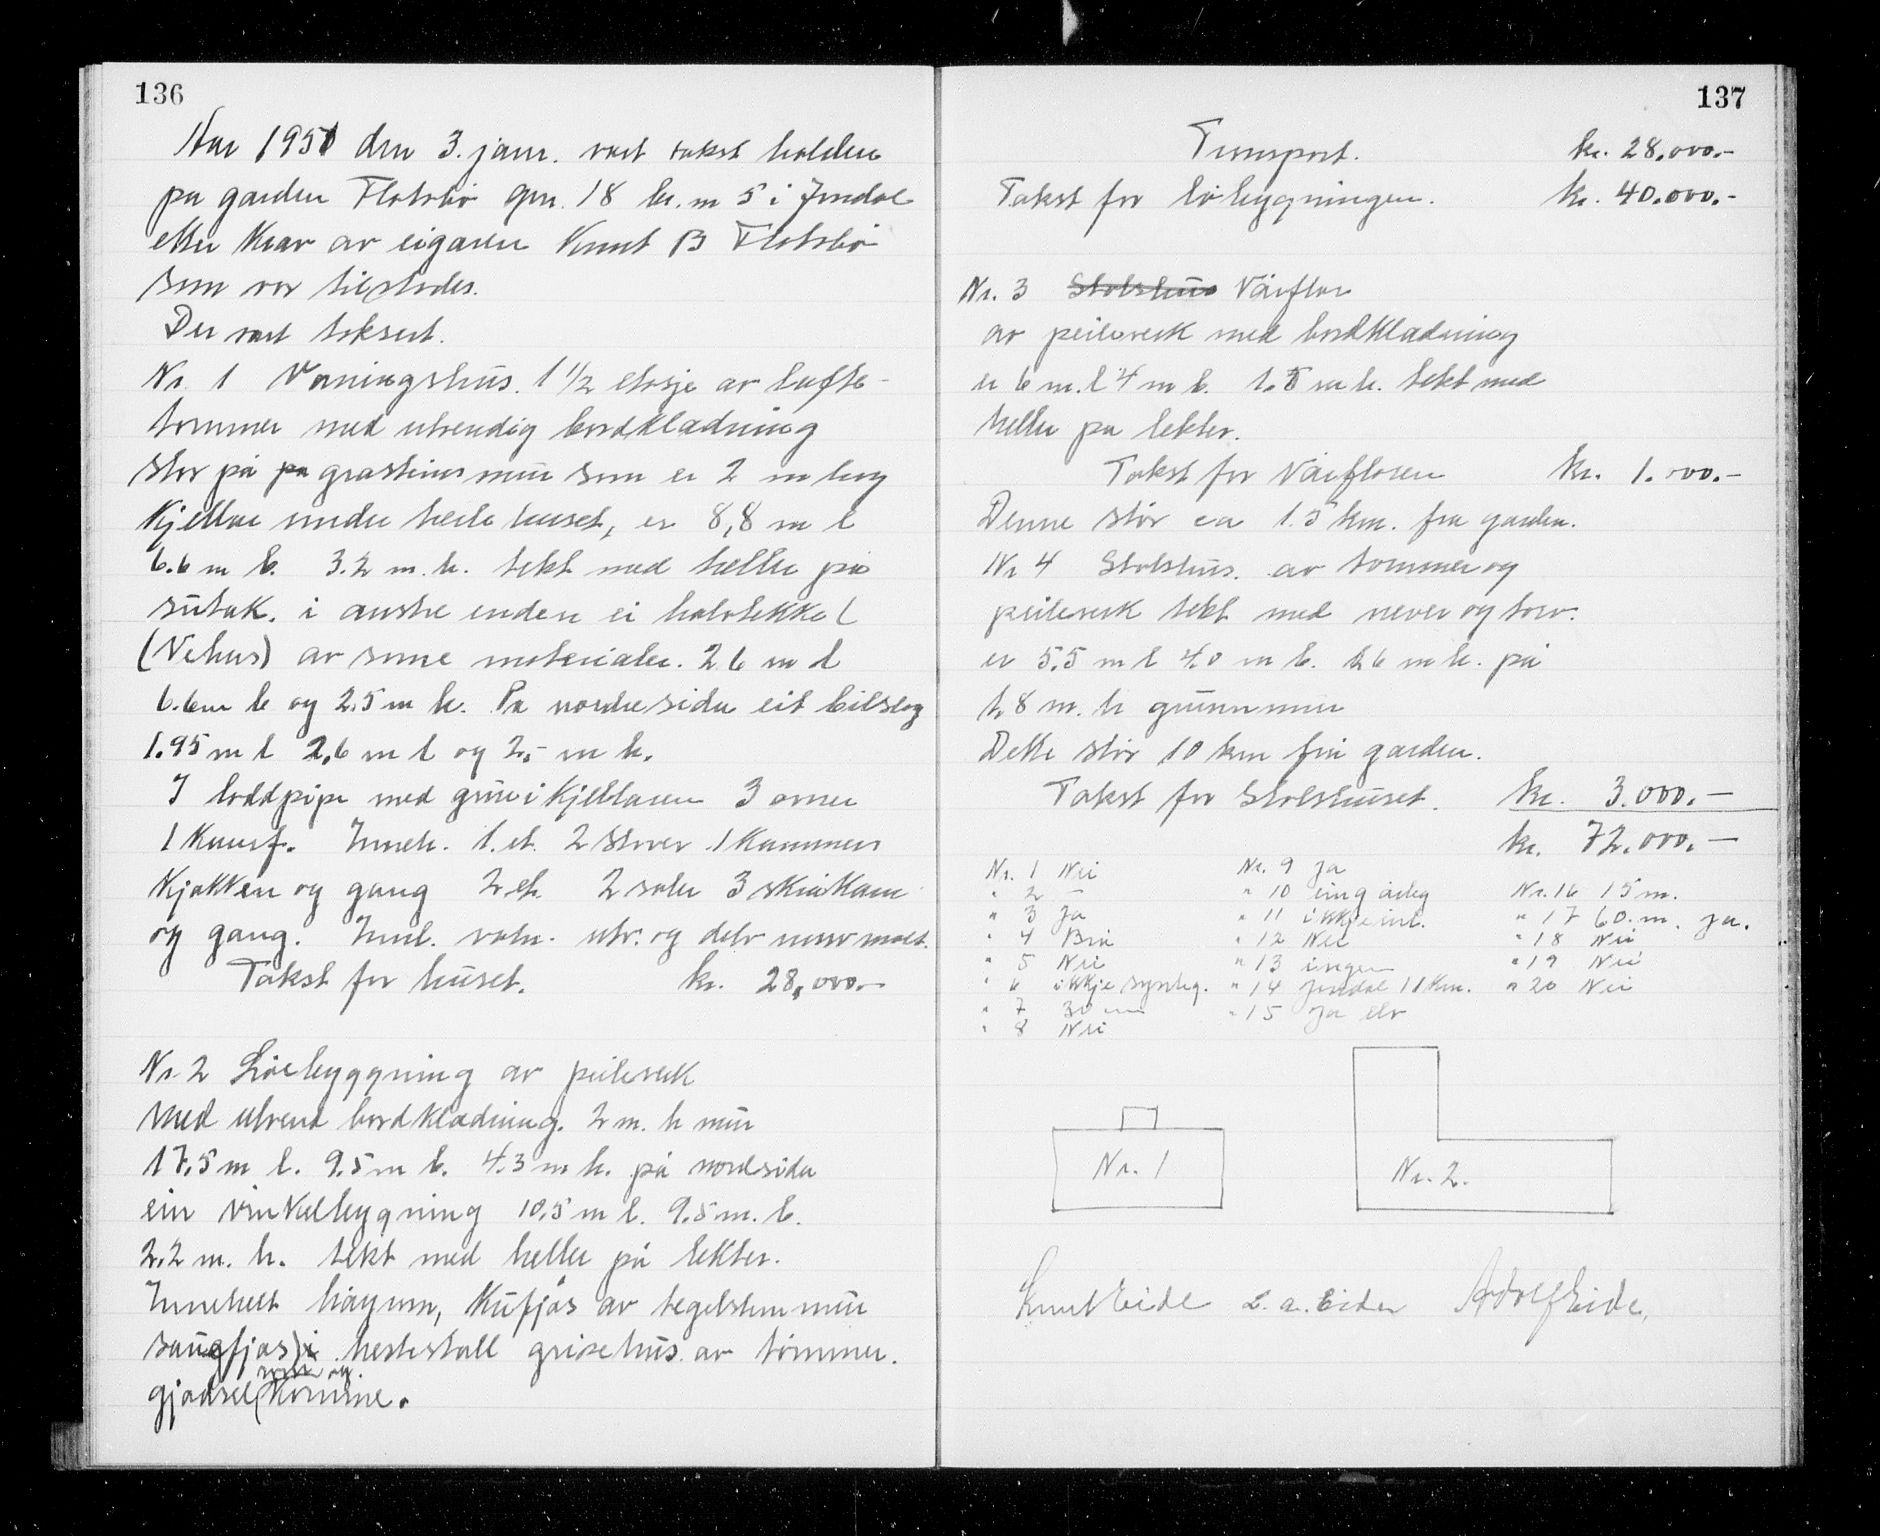 136
Aar 1951 den 3. janr. vart takst halden
på garden Flotabø gnr. 18 br. nr 5 i Jondal
etter krav av eigaren Knut B Flatabø
som var tilstades.
Der vart taksert.
Nr. 1 Vaaningshus. 1 1/2 etasje av lafte-
tømmer med utvendig bordkladning
står på på grasteins mur som er 2 m høg
Kjellar under heile huset, er 8,8 m l
6.6 m b. 3.2 m. h. tekt med heller på
sutak. i austre enden ei halvtekkel
(Vehus) av same materialer. 2.6 m l
6.6m b og 2.5 m h. På nordre sida eit bilslag
1.95 m l 2,6 m l og 2,- m h.
I loddpipe med grue i kjellaren 3 ovner
1 Kumf. Inneh. 1. et. 2 stover 1 Kammers
Kjøkken og gang 2 et. 2 saler 3 skråkam
og gang. Innl. vatn. utv. og delv innv malt.
Takst for huset. kr. 28,000.-
Nr. 2 Løebyggning av peileverk
med utvend bordkladning. 2 m. h mur
17.5 m l. 9.5 m b. 4.3 m h. på nordsida
ein vinkelbygning 10.5 m l. 9.5 m. b.
2.2 m. h. tekt med heller på lekter.
Innehelt høyrom, Kufjøs av tegelsten mur
saugfjøs) i hestestall grisehus av tømmer.
gjødsel(kommne.
137
Transport. kr. 28.000.-
Takst for løbygningen. kr. 40.000.-
Nr. 3 Stølshus Vårflor
av peileverk med bordkladning
er 6 m. l 4 m b. 1.8 m h. tekt med
heller på lekter.
Takst for Vårfloren kr. 1.000.-
Denne står ca 1.5 km. fra garden.
Nr 4 Stølshus. av tømmer og
peileverk tekt med never og torv.
er 5.5 m l 4.0 m b. 2.6 m h. på
1,8 m. h grunnmur
Dette står 10 km frå garden.
Takst for Stølshuset. kr. 3.000.-
kr. 72.000.-
Nr. 1 Nei Nr. 9 Ja
" 2 - " 10 eing årleg Nr. 16 15 m.
" 3 Ja " 11 ikkje inl. " 17 60. m. ja.
" 4 Bra " 12 Nei " 18 Nei
" 5 Nei " 13 ingen " 19 Nei
" 6 ikkje synleg. " 14 Jondal 11 Km. " 20 Nei
" 7 30 cm " 15 Ja elv
" 8 Nei
Nr. 1
Nr. 2.
Knut Eide L. A. Eiden Adolf Eide,